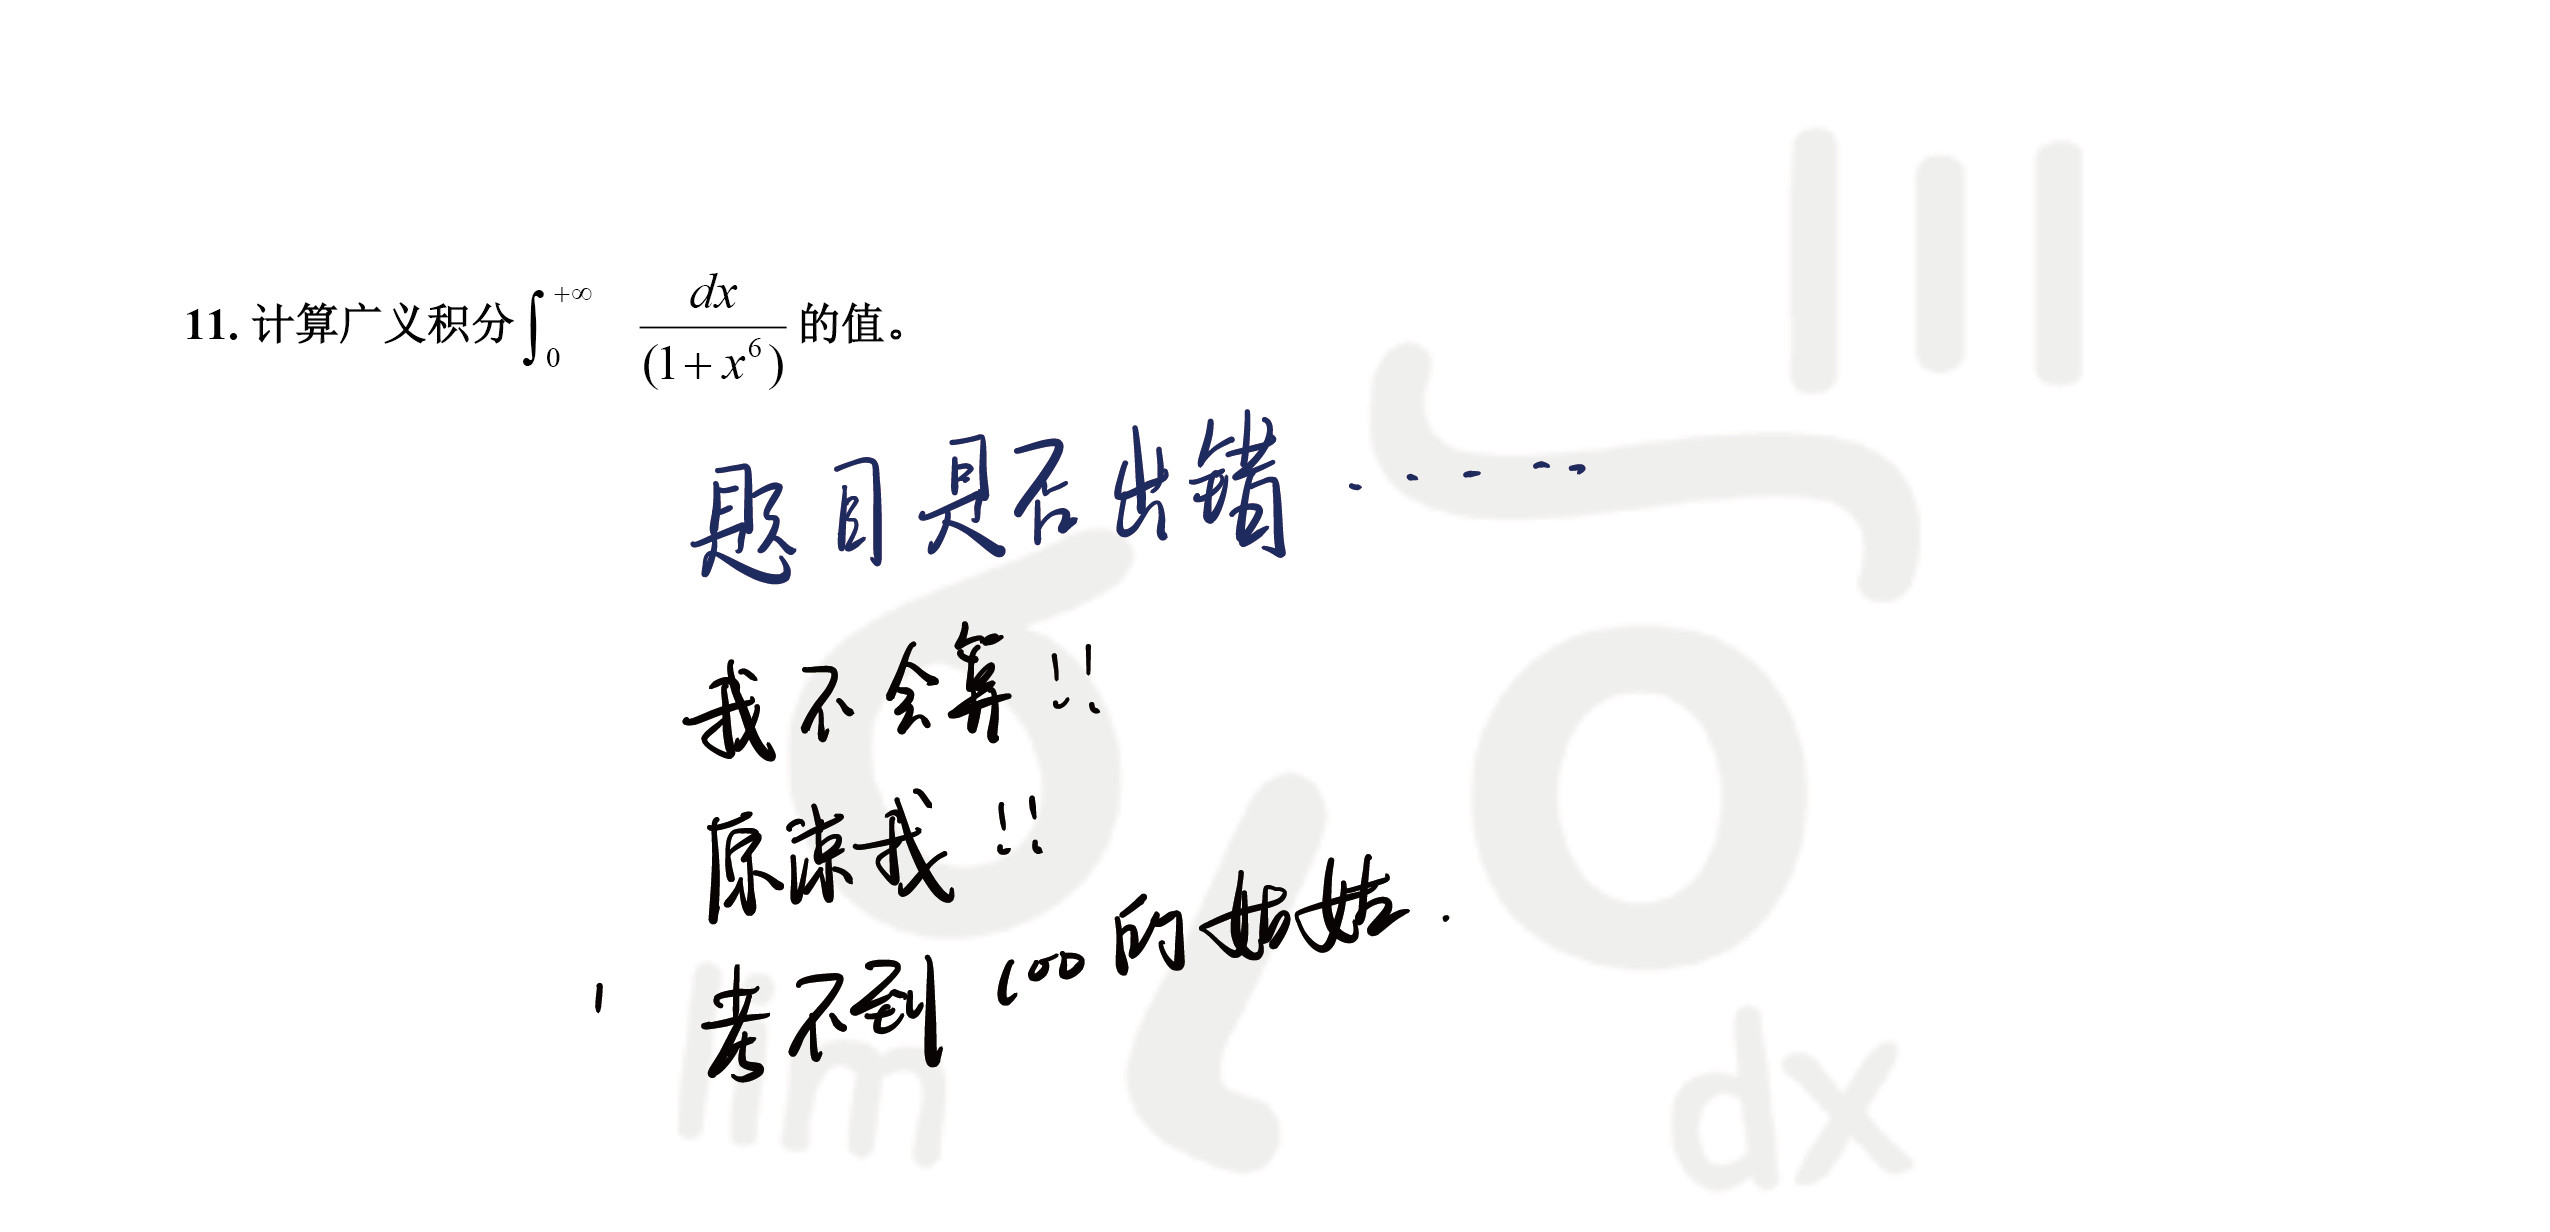 11. 计算广义积分∫₀^{+∞} dx/(1+x⁶) 的值。
题目是否出错......
我不会算!!
原谅我!!
考不到100的姑姑.
lim
dx